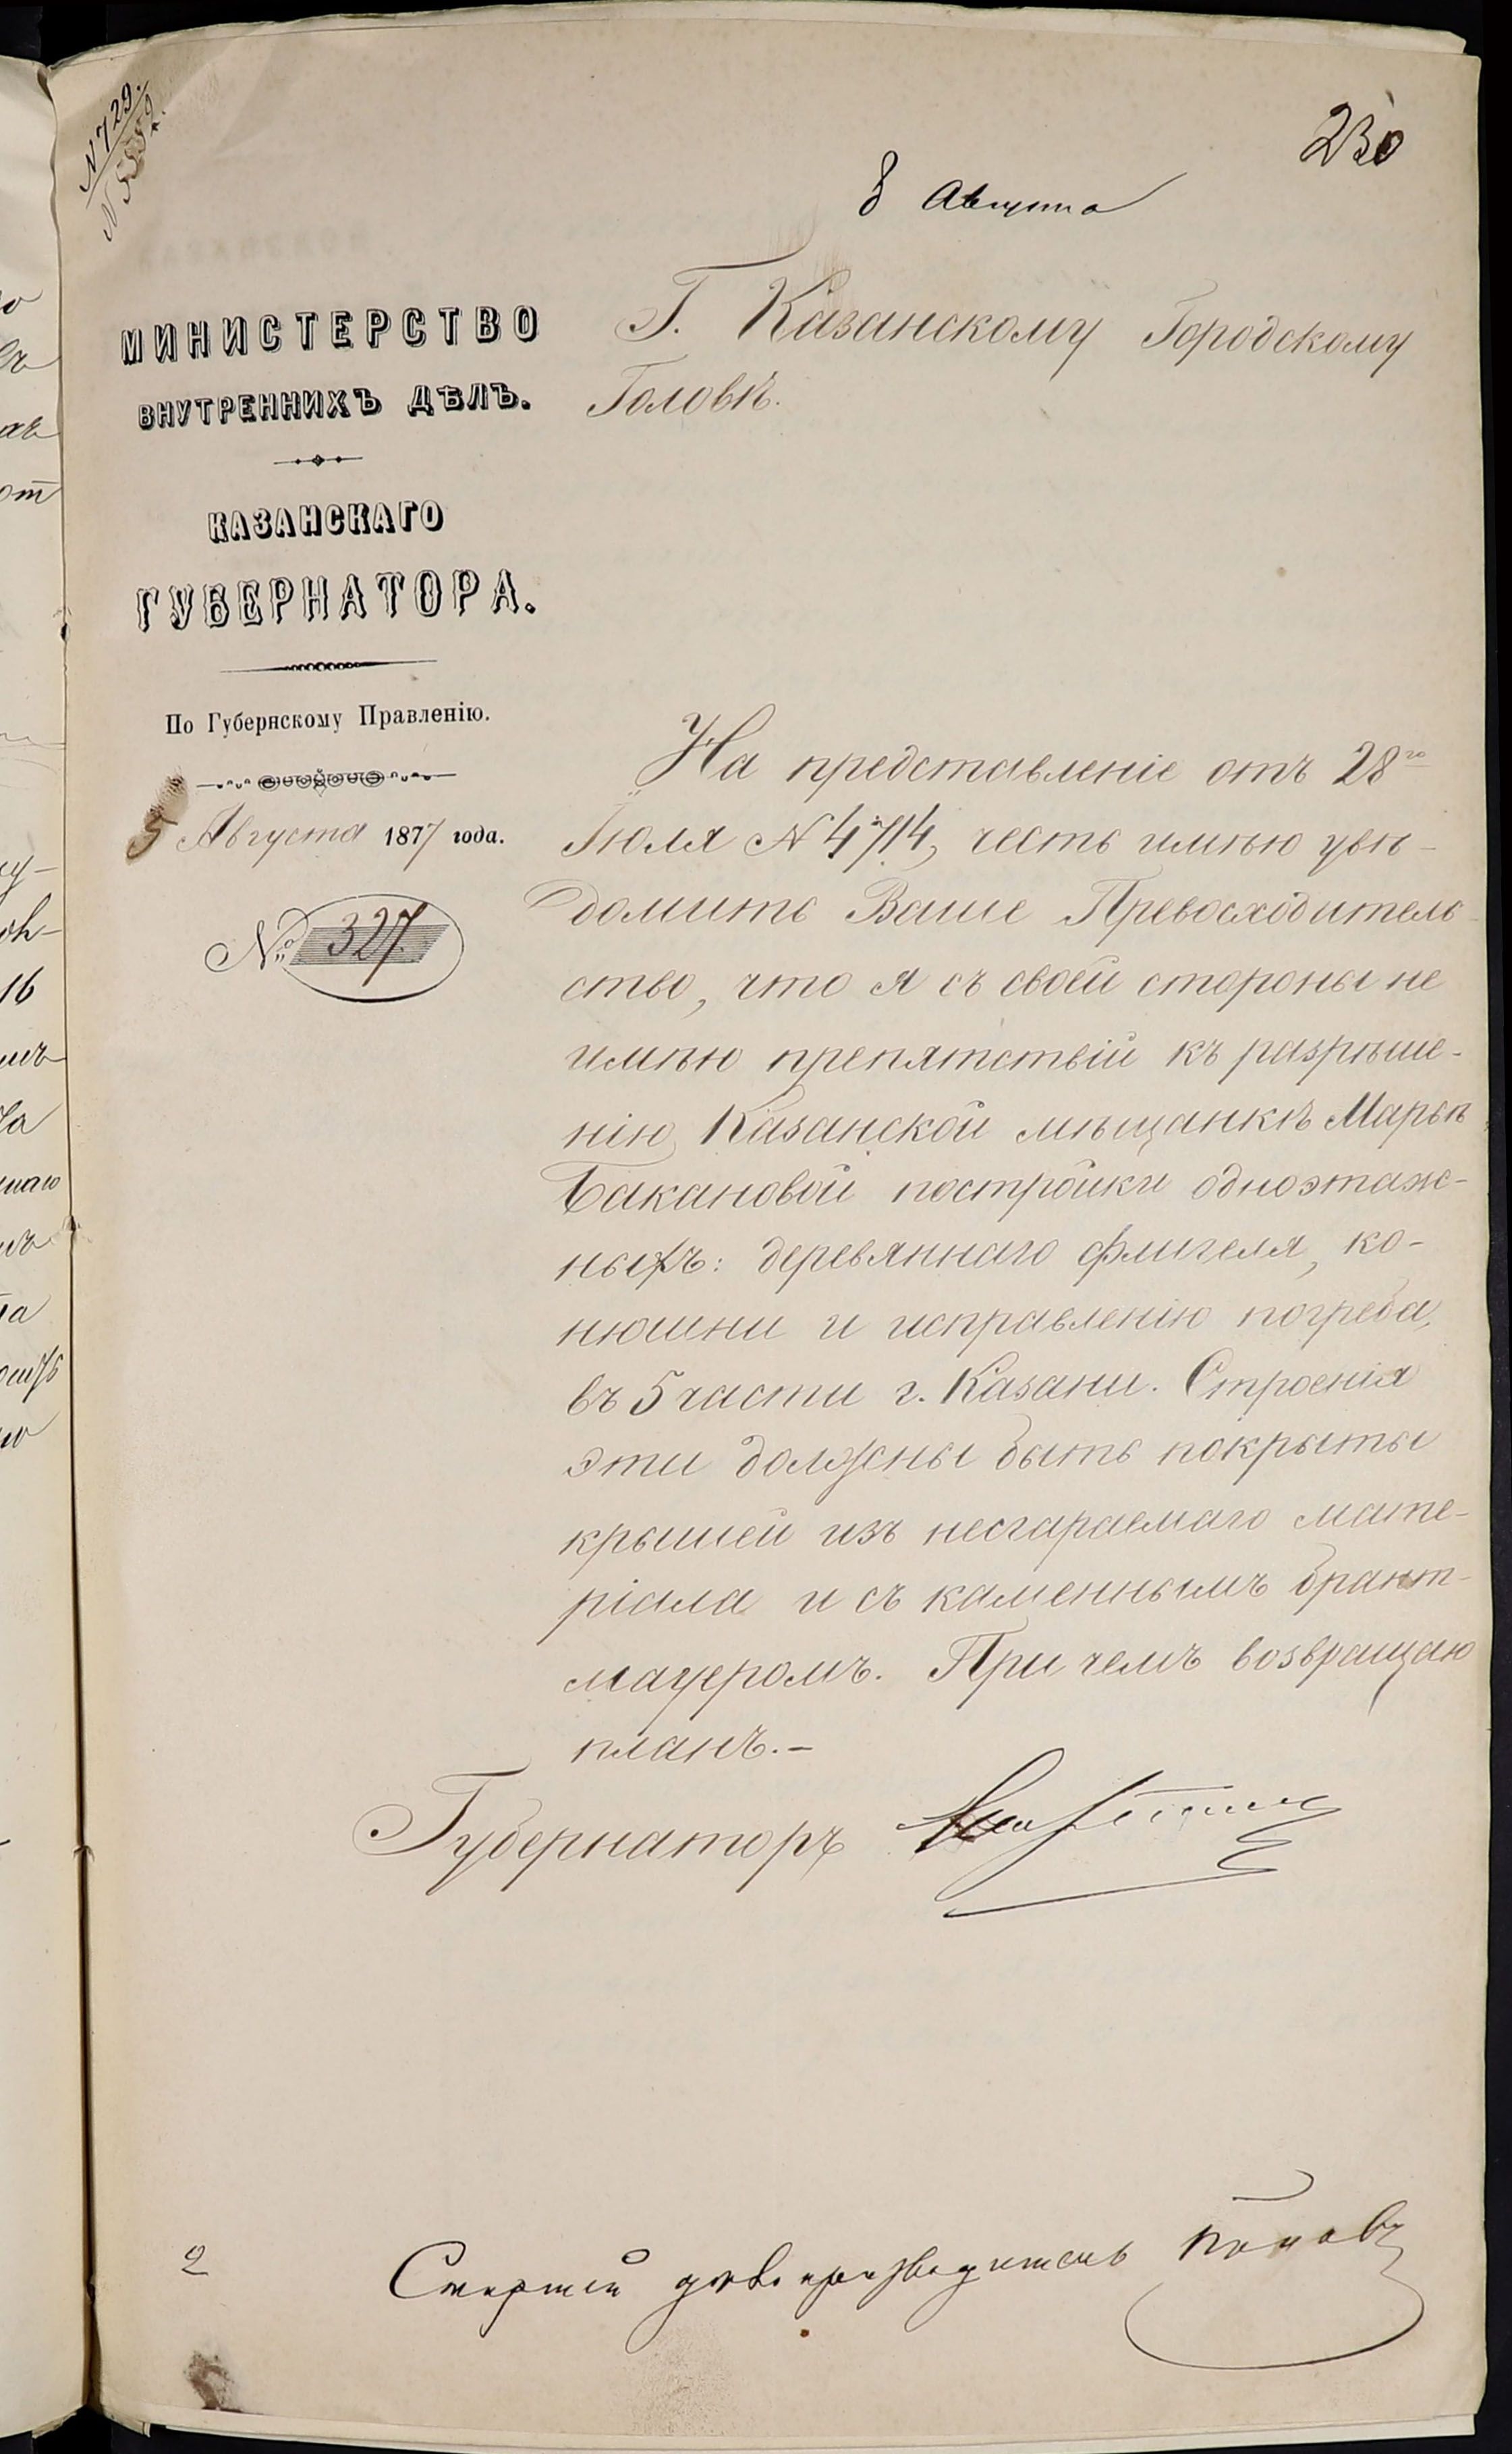 N 729.
N 5552.
230
8 Августа
МИНИСТЕРСТВО
ВНУТРЕННИХЪ ДѢЛЪ.
КАЗАНСКАГО
ГУБЕРНАТОРА.
По Губернскому Правленію.
5 Августа 1877 года.
№ 327.
Г. Казанскому Городскому
Головѣ.
На представленіе отъ 28го
Іюля N 4714, честь имѣю увѣ-
домить Ваше Превосходитель-
ство, что я съ своей стороны не
имѣю препятствій къ разрѣше-
нію Казанской мѣщанкѣ Марьѣ
Бакановой постройки одноэтаж-
ныхъ: деревяннаго флигеля, ко-
нюшни и исправленію погреба,
въ 5 части г. Казани. Строенія
эти должны быть покрыты
крышей изъ несгараемаго мате-
ріала и съ каменнымъ брант-
мауеромъ. При чемъ возвращаю
планъ.-
Губернаторъ
2
Старшій дѣлопроизводитель Поповъ